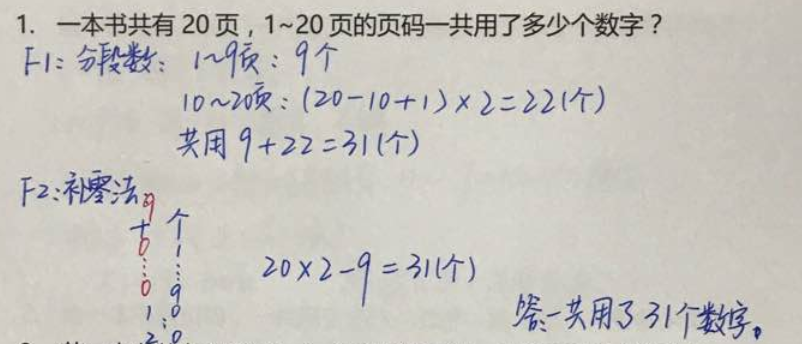 1. 一本书共有 20 页，1~20 页的页码一共用了多少个数字？
F1：分段数： 1~9页：9个
10~20页：(20-10+1)×2=22(个)
共用 9+22=31(个)
F2：补零法
9
十 个
0 1
⋮ ⋮
0 9
1 0
⋮
2 0
20×2-9=31(个)
答：一共用了31个数字。